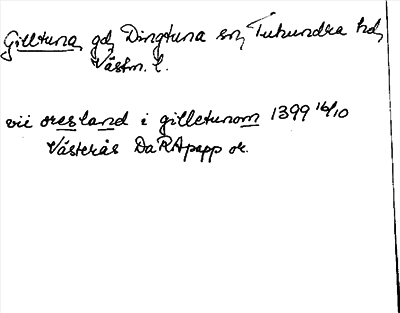 Gilltuna, gd, Dingtuna sn, Tuhundra hd,
Västm. l.
vii øresland i gilletunom 1399 16/10
Västerås DaRApapp or.